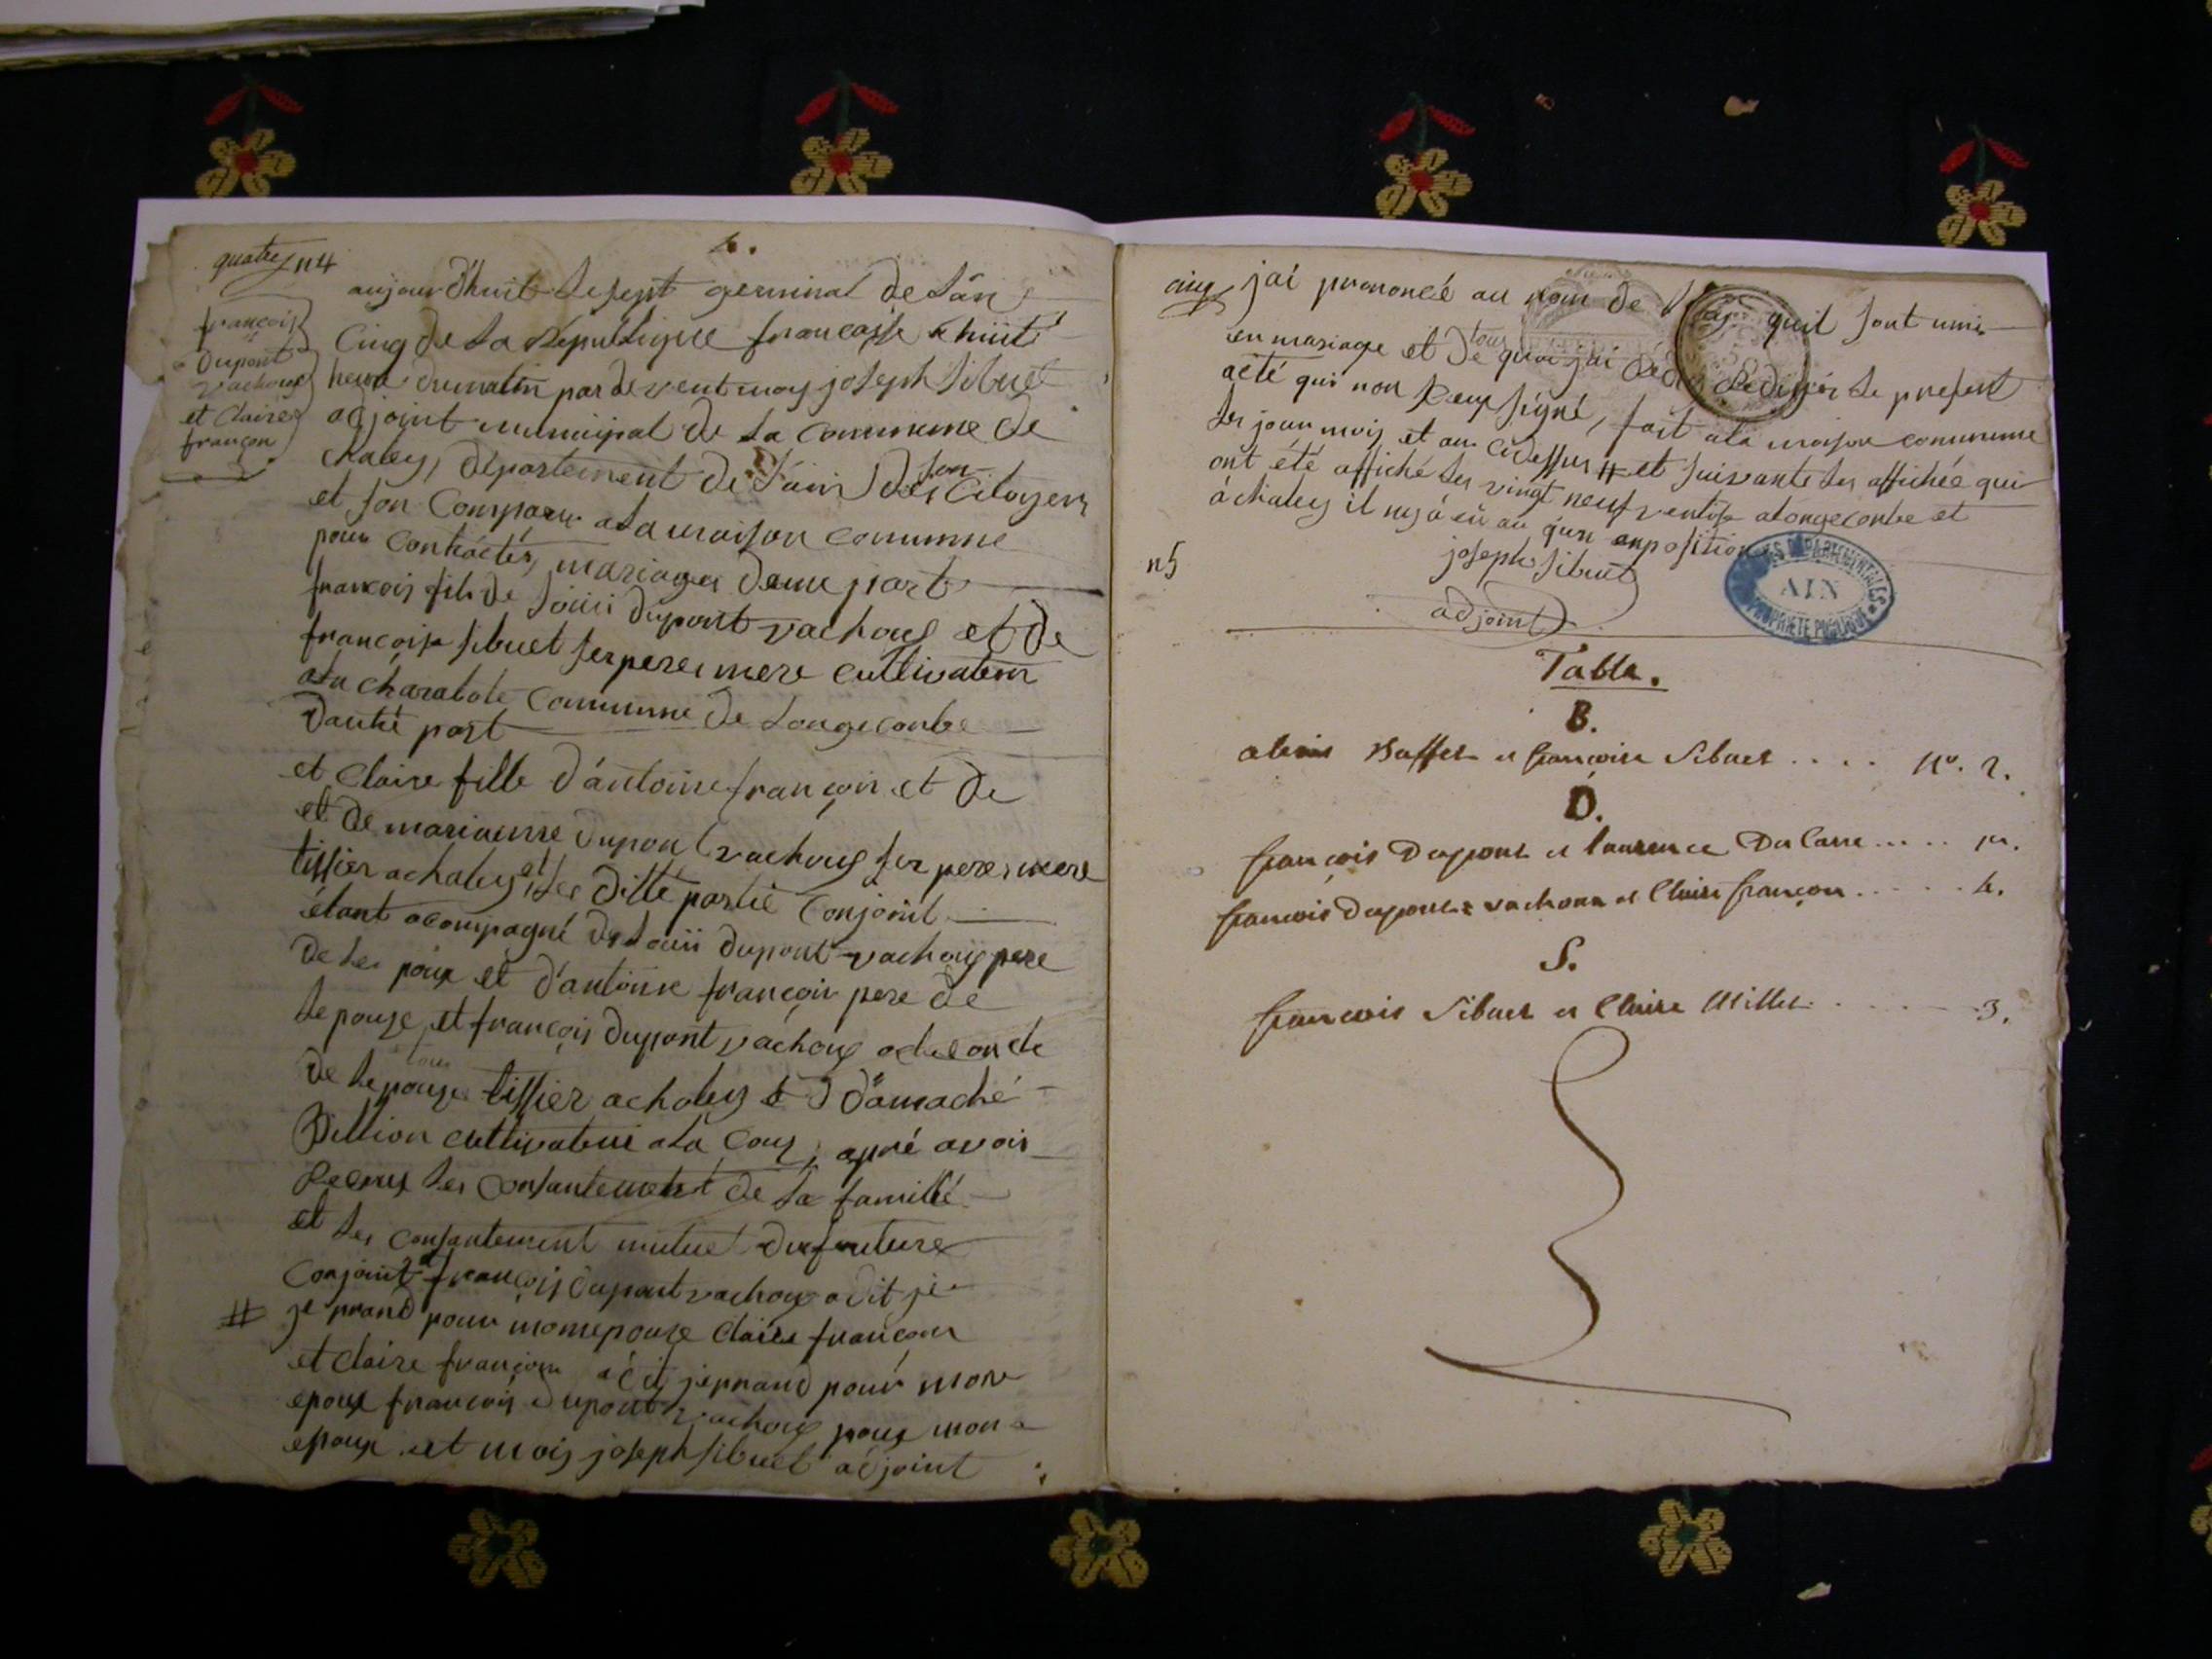 quatre n4
4.
françois
Dupont
vachoux
et Claire
françon
aujourd'huit le sept germinal de l'an
Cinq de la République françoise a huit
heure du matin par devent moy joseph sibuet
adjoint municipal de la commune de
chaley, département de l'ain son Citoyen
et son Comparu a la maison commune
pour Contracter mariages d'eune part
francois fils de louii dupont vachoux et de
francoise sibuet ses pere mere cultivateur
a la charabote Commune de longecombe
d'autre part
et Claire fille d'antoine françon et de
et de marianne dupont vachoux ses pere mere
tissier a chaley et les ditte partie Conjoint
étant acompagné de louii dupont vachoux pere
de les poux et d'antoine françon pere de
lepouze et françois dupont vachoux oncle
de lepouze tous tissier a chaley et d'amaché
Billion cultivateur a la Cour, apré avoir
Recus les consantement de la famille
et les consantement mutuel du future
Conjoint francois dupont vachoux a dit je
# je prand pour mon epouze Claire françon
et claire françon a dit je prand pour mon
epoux francois dupont vachoux pour mon
epoux et mois joseph sibuet adjoint
cinq jai prononcé au nom de quil sont uni
en mariage et de tous quoi jai Rediger le present
acte qui non seux signé, fait a la maison commune
les jour mois et an cidessus # et suivants les affichée qui
ont été affiché les vingt neuf ventose a longecombe et
à chaley il ny à eü au q'une opposition
n5
joseph sibuet
adjoint
ARCHIVES DÉPARTEMENTALES
AIN
PROPRIÉTÉ PUBLIQUE
Table.
B.
alexis Buffet et françoise Sibuet .... No. 2.
D.
françois Dupont et laurence Du Carre ..... 1er.
françois dupont vachoux et Claire françon ..... 4.
S.
françois Sibuet et Claire Millet ..... 3.